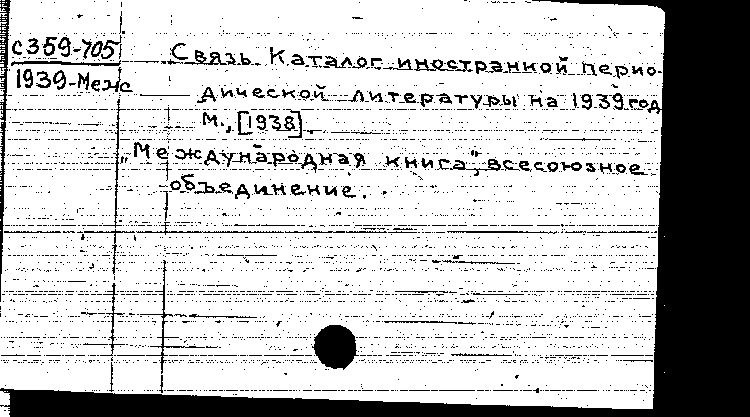 с359-705
1939-Меж
Связь Каталог иностранной перио-
дической литературы на 1939 год
М., [1938].
„Международная книга", всесоюзное
объединение.